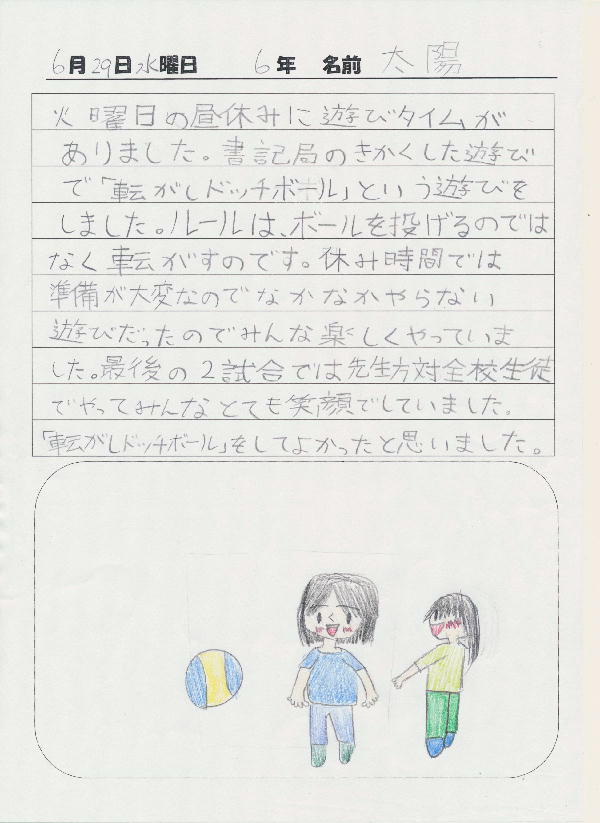 6月29日水曜日 6年 名前 太陽
火曜日の昼休みに遊びタイムが
ありました。書記局のきかくした遊び
で「転がしドッチボール」という遊びを
しました。ルールは、ボールを投げるのでは
なく転がすのです。休み時間では
準備が大変なのでなかなかやらない
遊びだったのでみんな楽しくやっていま
した。最後の2試合では先生方対全校生徒
でやってみんなとても笑顔でしていました。
「転がしドッチボール」をしてよかったと思いました。